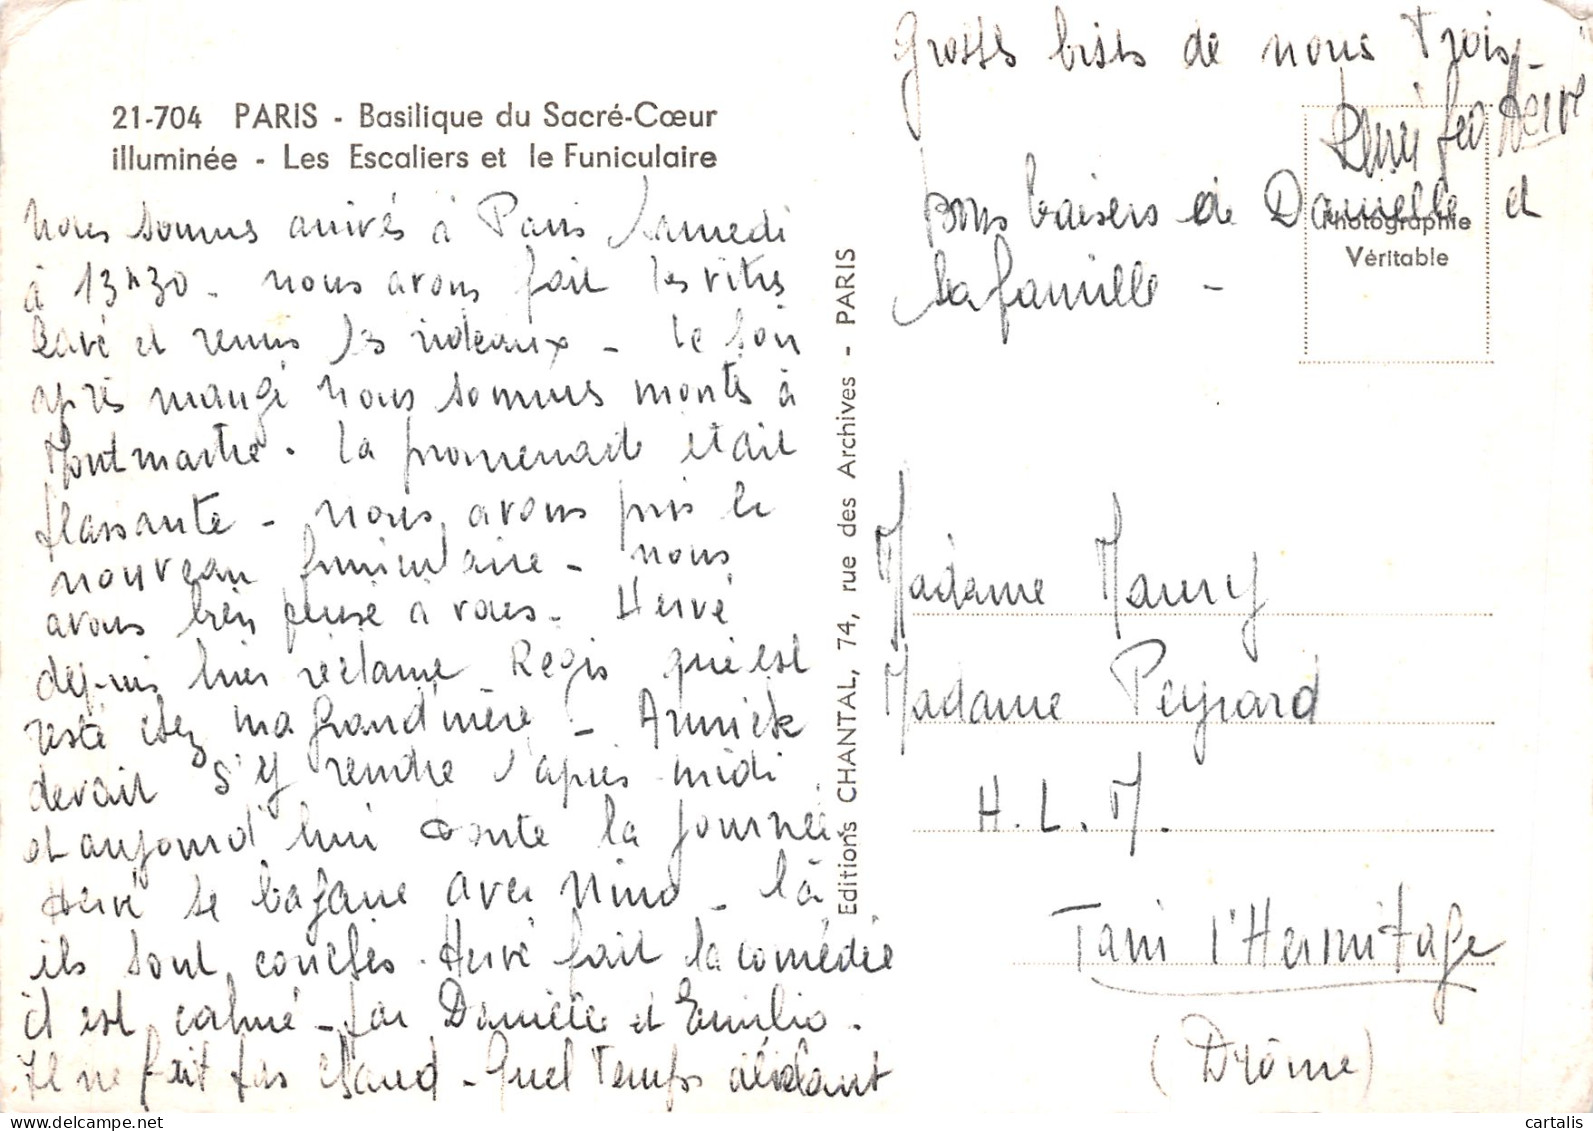 21-704 PARIS - Basilique du Sacré-Cœur
illuminée - Les Escaliers et le Funiculaire
Nous sommes arrivés à Paris Samedi
à 13h30 - nous avons fait les vitres
lavé et remis les rideaux - le soir
après mangé nous sommes montés à
Montmartre. La promenade était
flassante - nous avons pris le
nouveau funiculaire - nous
avons bien pensé à vous. Hervé
depuis hier réclame Régis qui est
resté chez ma grand'mère - Annick
devait s'y rendre l'après midi
et aujourd'hui toute la journée.
Hervé se bagare avec Nino - là
ils sont couchés. Hervé fait la comédie
il est calmé - par Danièle et Emilio.
Il ne fait pas chaud - Quel temps
Editions CHANTAL, 74, rue des Archives - PARIS
Grosses bises de nous Trois -
Hervé
Bons baisers de Danielle et
la famille -
Photographie
Véritable
Madame Maury
Madame Peyrard
H.L.M.
Tain l'Hermitage
(Drôme)
cartalis